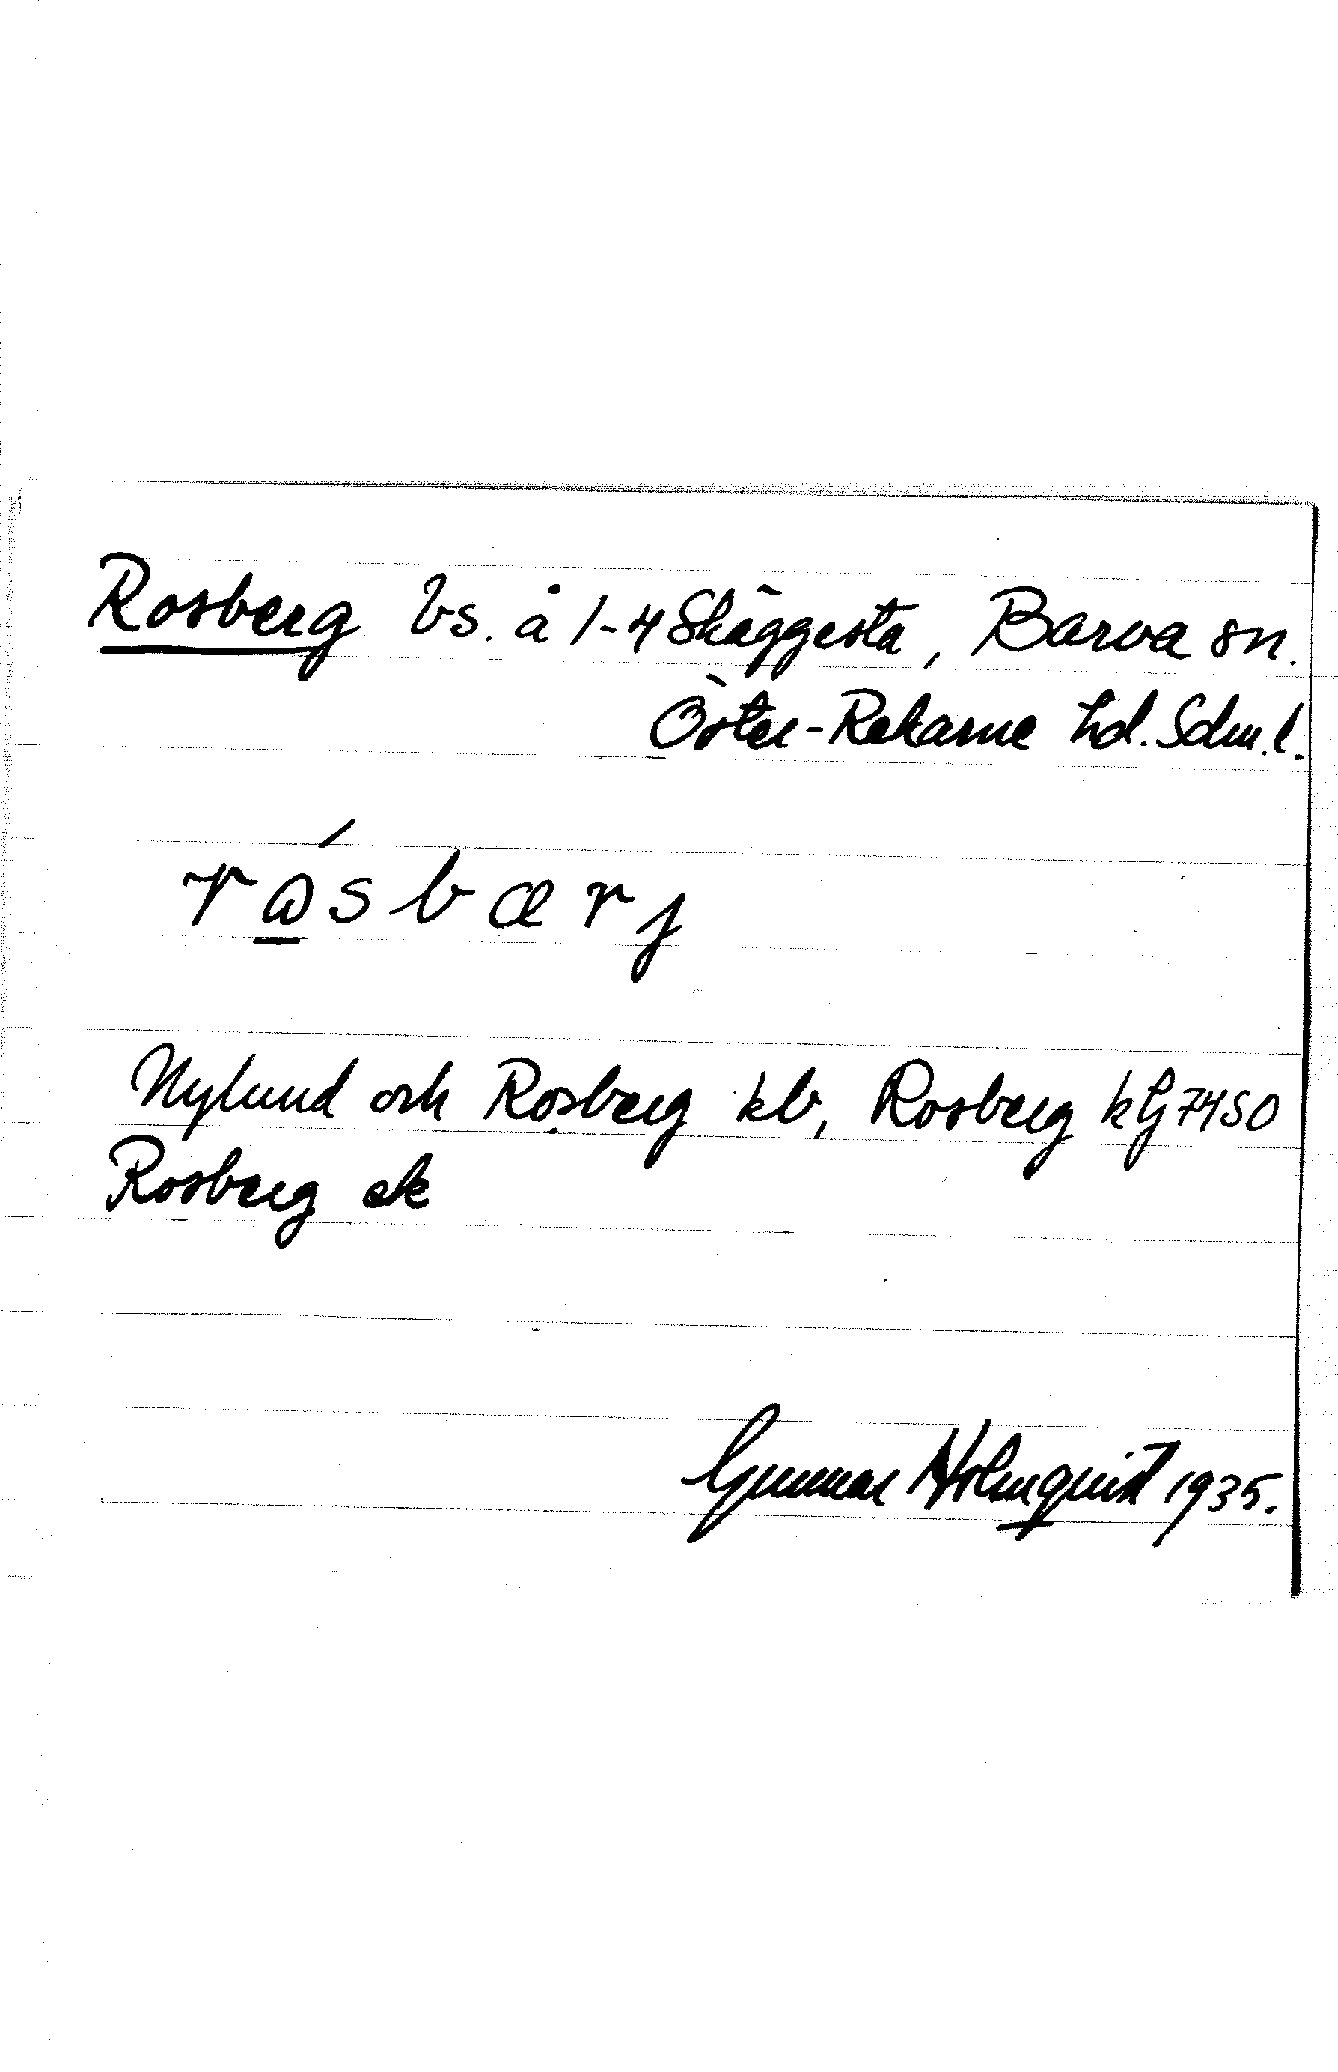 Rosberg bs. å 1-4 Skäggesta, Barva sn.
Öster-Rekarne hd. Sdm. l.
rɷ́sbærj
Nylund och Rosberg kb, Rosberg kG 74 SO
Rosberg ek
Gunnar Holmquist 1935.